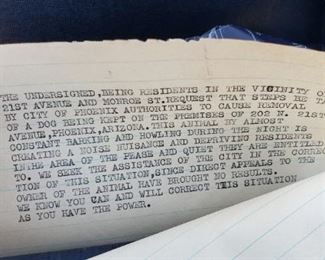 THE UNDERSIGNED,BEING RESIDENTS IN THE VICINITY OF
21ST AVENUE AND MONROE ST.REQUEST THAT STEPS BE TA
BY CITY OF PHOENIX AUTHORITIES TO CAUSE REMOVAL
OF A DOG BEING KEPT ON THE PREMISES OF 202 N. 21ST
AVENUE,PHOENIX,ARIZONA.THIS ANIMAL BY ALMOST
CONSTANT BARKING AND HOWLING DURING THE NIGHT IS
CREATING A NOISE NUISANCE AND DEPRIVING RESIDENTS
INTHE AREA OF THE PEASE AND QUIET THEY ARE ENTITLED
TO. WE SEEK THE ASSISTANCE OF THE CITY IN THE CORREC
TION OF THIS SITUATION,SINCE DIRECT APPEALS TO THE
OWNER OF THE ANIMAL HAVE BROUGHT NO RESULTS.
WE KNOW YOU CAN AND WILL CORRECT THIS SITUATION
AS YOU HAVE THE POWER.